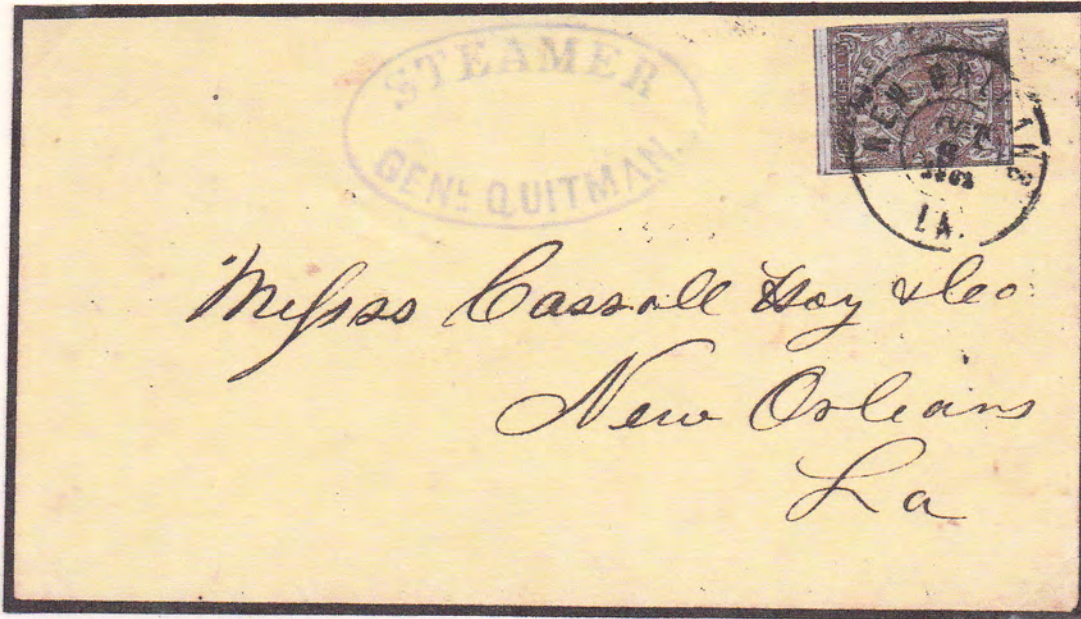 STEAMER
GENL QUITMAN
NEW ORLEANS
LA.
Messrs Carroll Hoy & Co
New Orleans
La